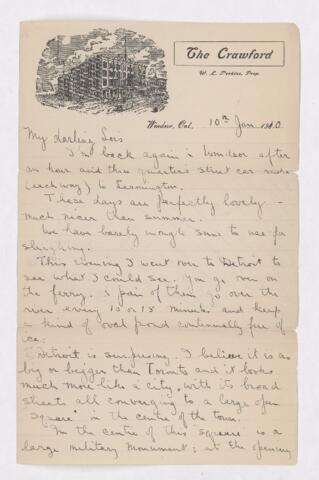 The Crawford
W. L. Perkins, Prop.
Windsor, Ont. 10th Jan 1910.
My darling Lois
I'm back again in Windsor after
an hour and three quarter's street car ride
(each way) to Leamington.
These days are perfectly lovely -
much nicer than summer.
We have barely enough snow to use for
sleighing.
This evening I went over to Detroit to
see what I could see. You go over on
the ferry. A pair of them go over the
river every 10 or 15 minutes and keep
a kind of oval pond continually free of
ice.
Detroit is surprising. I believe it is as
big or bigger than Toronto and it looks
much more like a city, with its broad
streets all converging to a large open
"Square" in the centre of the town.
In the centre of this square is a
large military Monument; at the opening